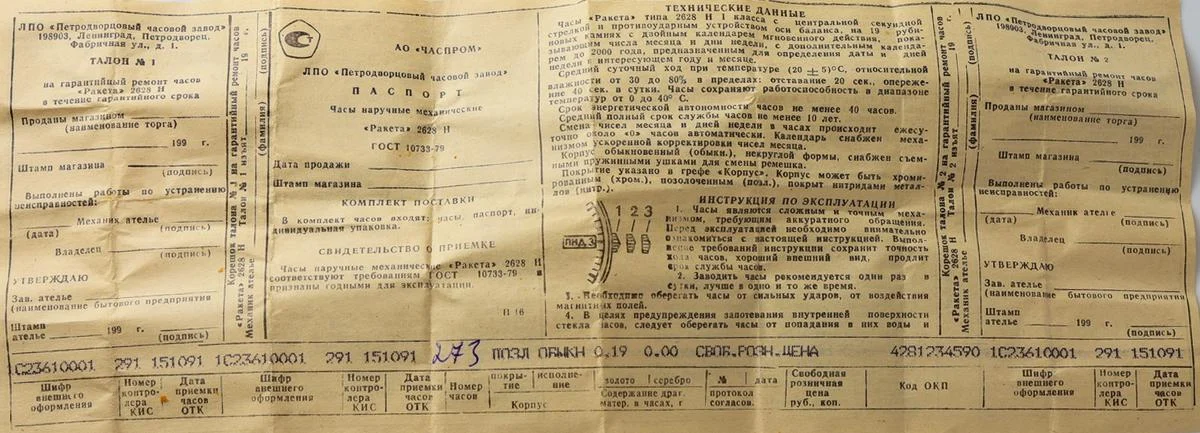 ЛПО «Петродворцовый часовой завод»
198903, Ленинград, Петродворец,
Фабричная ул., д. 1.
ТАЛОН № 1
на гарантийный ремонт часов
«Ракета» 2628 Н
в течение гарантийного срока
Проданы магазином
(наименование торга)
199 г.
Штамп магазина
(подпись)
Выполнены работы по устранению
неисправностей:
Механик ателье
(дата) (подпись)
Владелец
(подпись)
УТВЕРЖДАЮ
Зав. ателье
(наименование бытового предприятия)
Штамп
ателье 199 г.
(подпись)
Корешок талона № 1 на гарантийный ремонт часов
«Ракета» 2628 Н Талон № 1 изъят 19 г.
Механик ателье (фамилия) (подпись)
АО «ЧАСПРОМ»
ЛПО «Петродворцовый часовой завод»
ПАСПОРТ
Часы наручные механические
«Ракета» 2628 Н
ГОСТ 10733-79
Дата продажи
Штамп магазина
КОМПЛЕКТ ПОСТАВКИ
В комплект часов входят: часы, паспорт, ин-
дивидуальная упаковка.
СВИДЕТЕЛЬСТВО О ПРИЕМКЕ
Часы наручные механические «Ракета» 2628 Н
соответствуют требованиям ГОСТ 10733-79 и
признаны годными для эксплуатации.
П 16
ТЕХНИЧЕСКИЕ ДАННЫЕ
Часы «Ракета» типа 2628 Н 1 класса с центральной секундной
стрелкой и противоударным устройством оси баланса, на 19 руби-
новых камнях с двойным календарем мгновенного действия, пока-
зывающим числа месяца и дни недели, с дополнительным календа-
рем до 2000 года, предназначенным для определения даты и дней
недели в интересующем году и месяце.
Средний суточный ход при температуре (20 ± 5)°С, относительной
влажности от 30 до 80% в пределах: отставание 20 сек., опереже-
ние 40 сек. в сутки. Часы сохраняют работоспособность в диапазоне
температур от 0 до 40° С.
Срок энергетической автономности часов не менее 40 часов.
Средний полный срок службы часов не менее 10 лет.
Смена чисел месяца и дней недели в часах происходит ежесу-
точно около «0» часов автоматически. Календарь снабжен меха-
низмом ускоренной корректировки чисел месяца.
Корпус обыкновенный (обыкн.), некруглой формы, снабжен съем-
ными пружинными ушками для смены ремешка.
Покрытие указано в графе «Корпус». Корпус может быть хроми-
рованным (хром.), позолоченным (позл.), покрыт нитридами метал-
лов (нитр.).
ПНД 3
1 2 3
ИНСТРУКЦИЯ ПО ЭКСПЛУАТАЦИИ
1. Часы являются сложным и точным меха-
низмом, требующим аккуратного обращения.
Перед эксплуатацией необходимо внимательно
ознакомиться с настоящей инструкцией. Выпол-
нение требований инструкции сохранит точность
хода часов, хороший внешний вид, продлит
срок службы часов.
2. Заводить часы рекомендуется один раз в
сутки, лучше в одно и то же время.
3. Необходимо оберегать часы от сильных ударов, от воздействия
магнитных полей.
4. В целях предупреждения запотевания внутренней поверхности
стекла часов, следует оберегать часы от попадания в них воды и
Корешок талона № 2 на гарантийный ремонт часов
«Ракета» 2628 Н Талон № 2 изъят 19 г.
Механик ателье (фамилия) (подпись)
ЛПО «Петродворцовый часовой завод»
198903, Ленинград, Петродворец,
Фабричная ул., д. 1.
ТАЛОН № 2
на гарантийный ремонт часов
«Ракета» 2628 Н
в течение гарантийного срока
Проданы магазином
(наименование торга)
199 г.
Штамп магазина
(подпись)
Выполнены работы по устранению
неисправностей:
Механик ателье
(дата) (подпись)
Владелец
(подпись)
УТВЕРЖДАЮ
Зав. ателье
(наименование бытового предприятия)
Штамп
ателье 199 г.
(подпись)
1С23610001 291 151091 1С23610001 291 151091 273 ПОЗЛ ОБЫКН 0.19 0.00 СВОБ.РОЗН.ЦЕНА 4281234590 1С23610001 291 151091
Шифр внешнего оформления
Номер контролера КИС
Дата приемки часов ОТК
Шифр внешнего оформления
Номер контро- лера КИС
Дата приемки часов ОТК
Номер часов
покры- тие исполне- ние
Корпус
золото серебро
Содержание драг. матер. в часах, г
№ дата
протокол согласов.
Свободная розничная цена руб., коп.
Код ОКП
Шифр внешнего оформления
Номер контро- лера КИС
Дата приемки часов ОТК